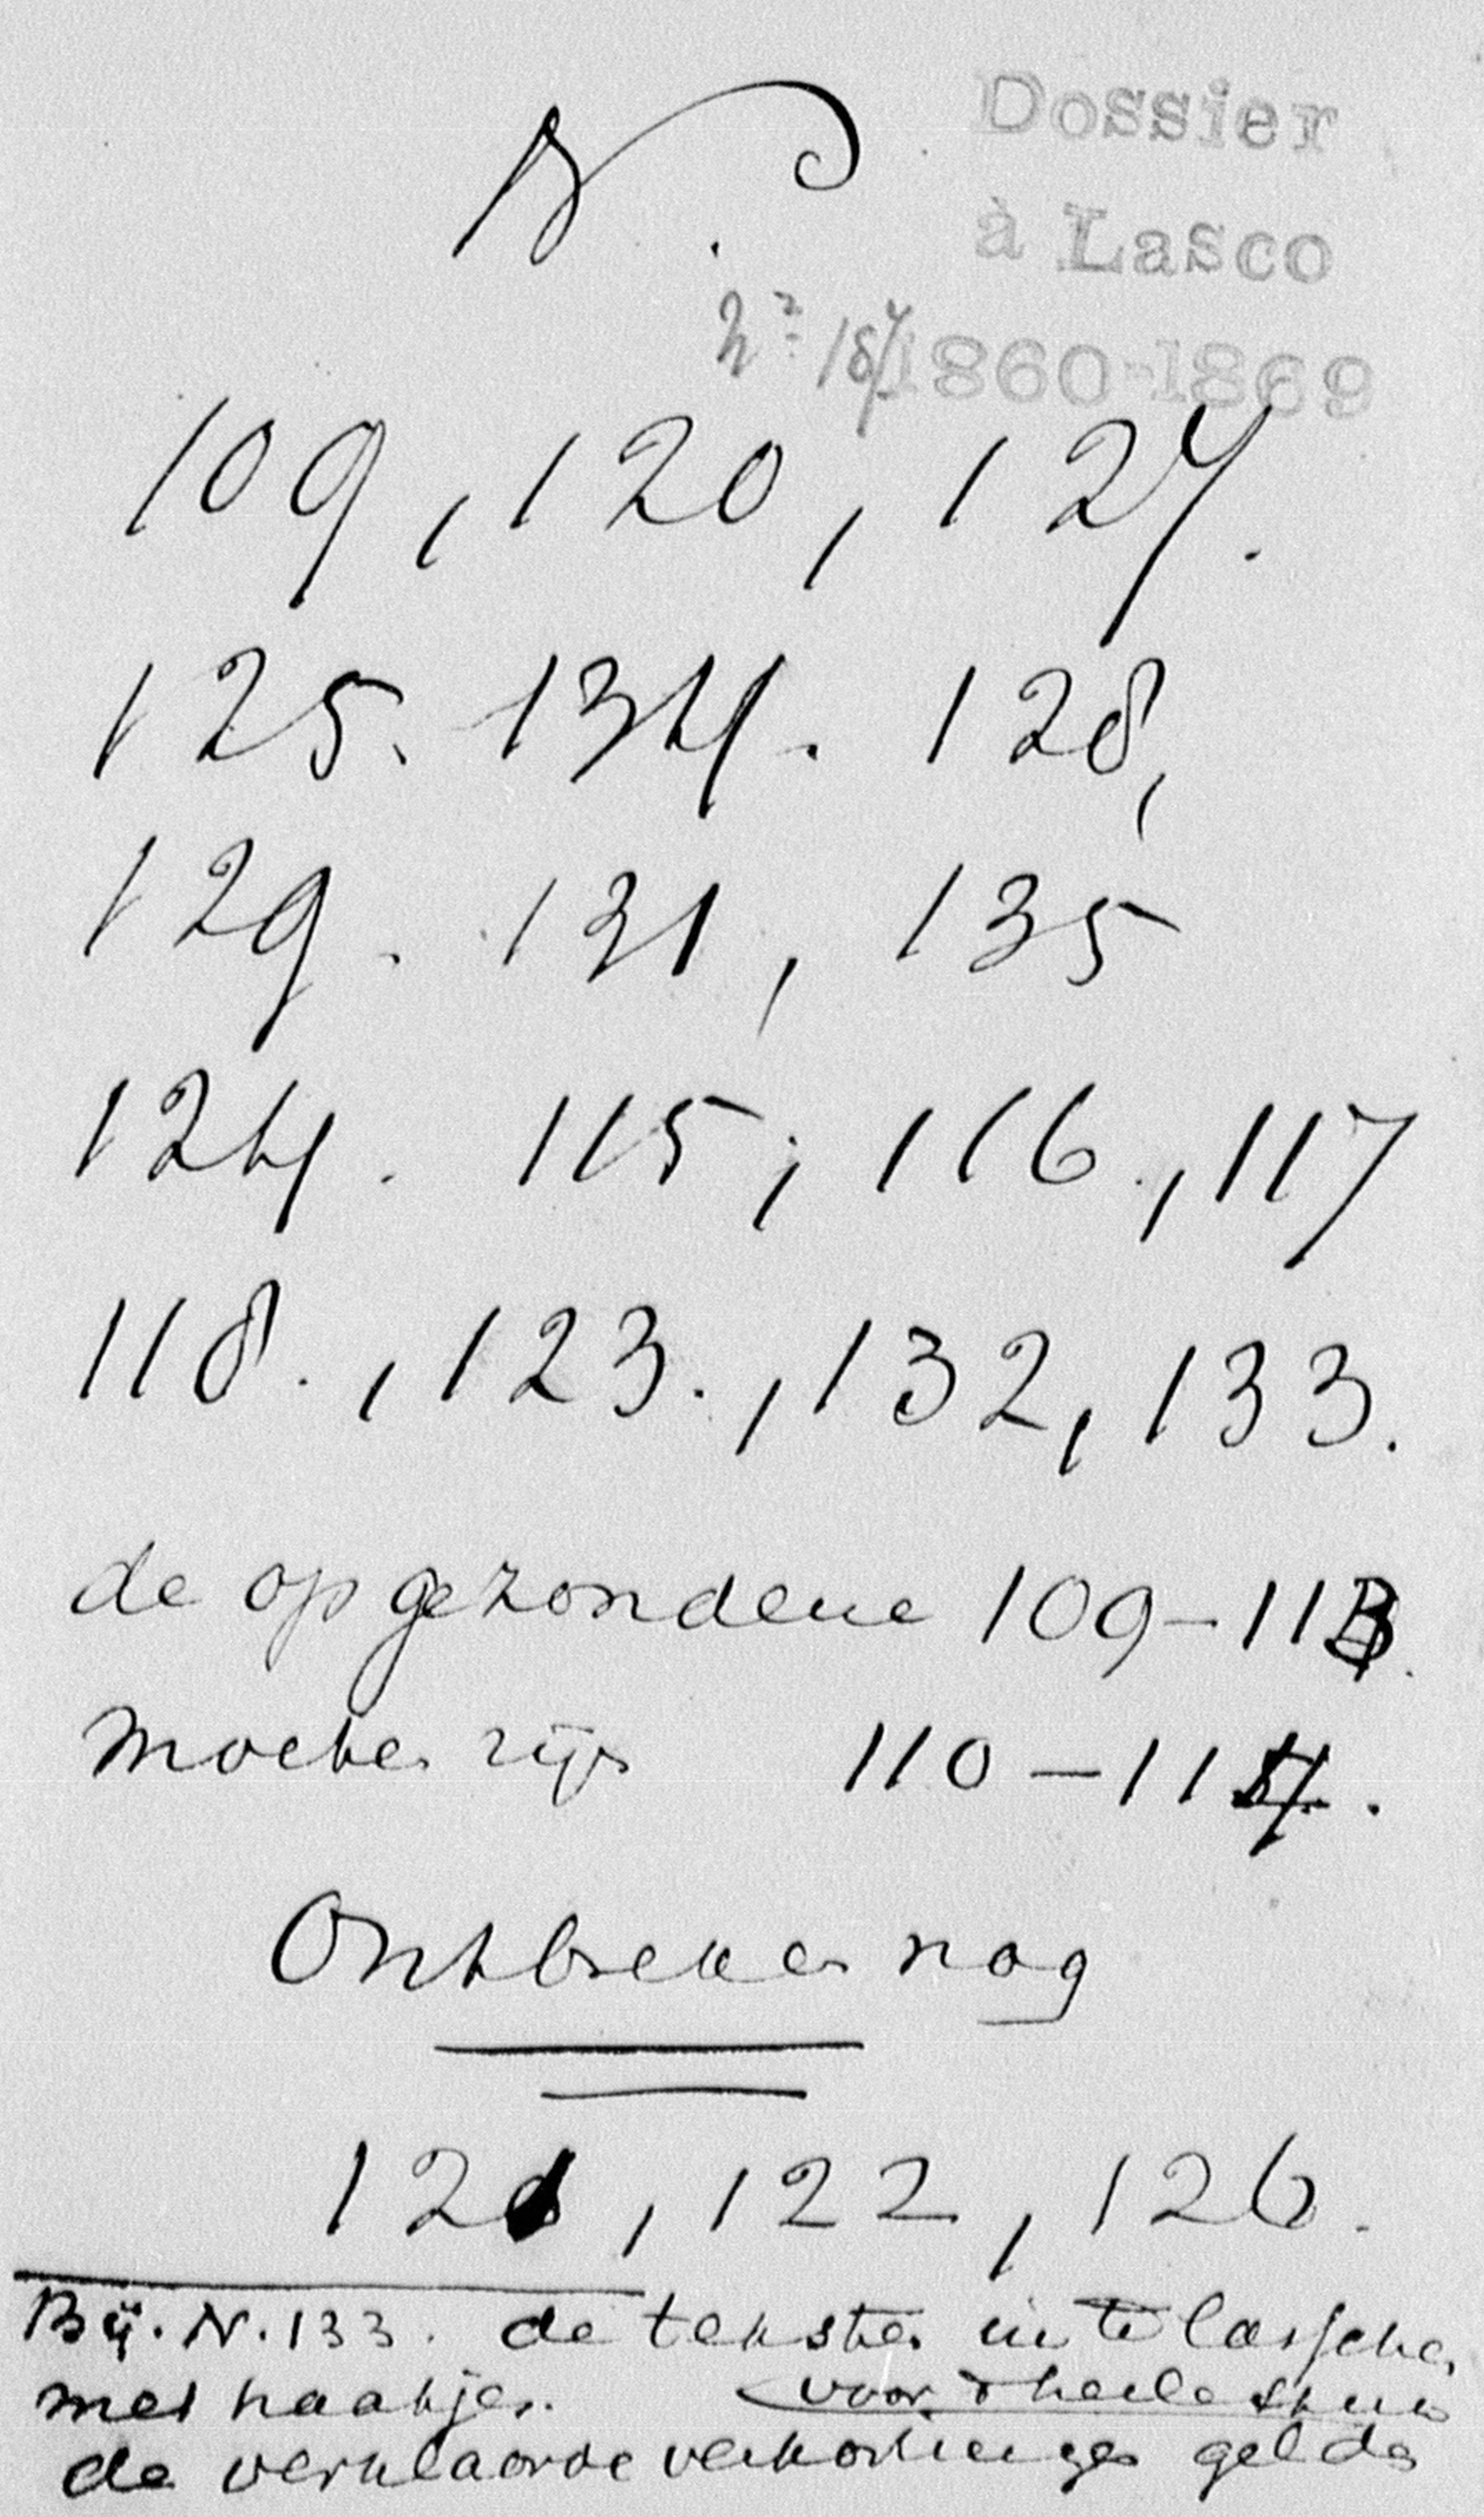 N.
Dossier
à Lasco
1860-1869
109, 120, 127.
125. 134. 128,
129. 131, 135
124. 115, 116., 117
118., 123., 132, 133.
de opgezondene 109-113.
moeten zijn 110-114.
Ontbreken nog
121, 122, 126.
Bij. N. 133. de teksten in te lasschen
met haakjes. voor 't heele stuk
de verklaarde verkortingen gelden